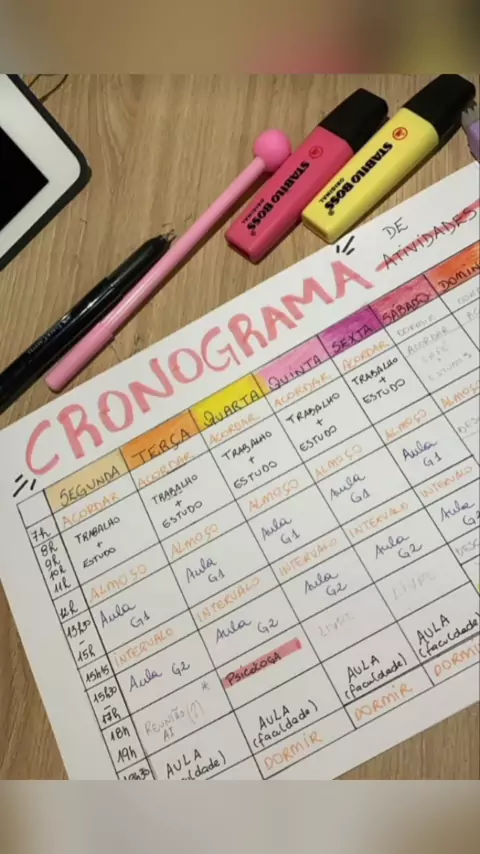 STABILO BOSS
ORIGINAL
STABILO BOSS
ORIGINAL
CRONOGRAMA DE ATIVIDADES
SEGUNDA TERÇA QUARTA QUINTA SEXTA SÁBADO DOMIN
7h ACORDAR ACORDAR ACORDAR ACORDAR ACORDAR DORMIR
8h
9h
10h
11h
TRABALHO + ESTUDO
TRABALHO + ESTUDO
TRABALHO + ESTUDO
TRABALHO + ESTUDO
TRABALHO + ESTUDO
ACORDAR CAFÉ
ALMOÇO ALMOÇO ALMOÇO ALMOÇO ALMOÇO ALMOÇ
13h30 - 15h
Aula G1
Aula G1
Aula G1
Aula G1
Aula G1
15h15 INTERVALO INTERVALO INTERVALO INTERVALO INTERVALO
15h30 - 17h
Aula G2
Aula G2
Aula G2
Aula G2
Aula G2
18h
19h
REUNIÃO (?) AI *
PSICÓLOGA
LIVRE
LIVRE
19h30
AULA (faculdade)
AULA (faculdade)
AULA (faculdade)
AULA (faculdade)
DORMIR DORMIR DORMIR